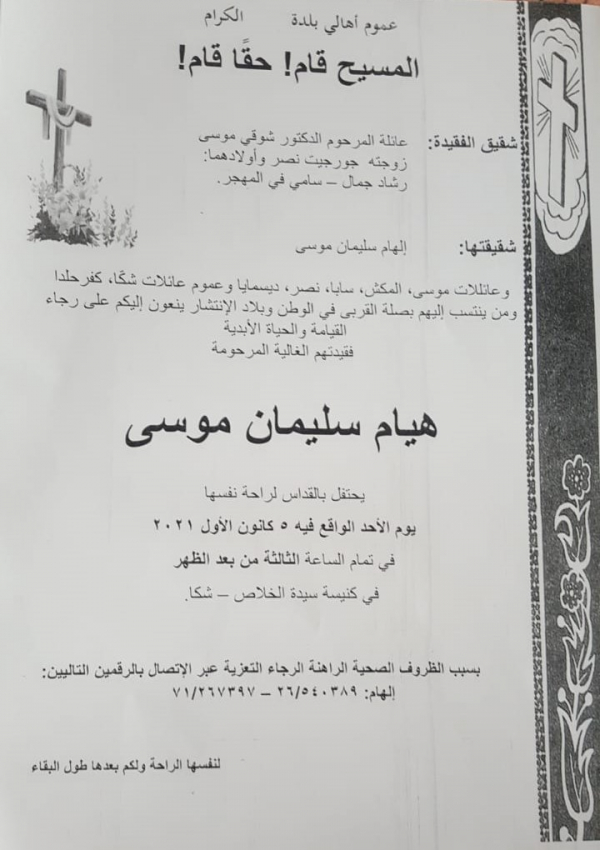 عموم أهالي بلدة الكرام
المسيح قام! حقًا قام!
شقيق الفقيدة: عائلة المرحوم الدكتور شوقي موسى
زوجته جورجيت نصر وأولادهما:
رشاد جمال – سامي في المهجر.
شقيقتها: إلهام سليمان موسى
وعائلات موسى، المكش، سابا، نصر، ديسمايا وعموم عائلات شكّا، كفرحلدا
ومن ينتسب إليهم بصلة القربى في الوطن وبلاد الإنتشار ينعون إليكم على رجاء
القيامة والحياة الأبدية
فقيدتهم الغالية المرحومة
هيام سليمان موسى
يحتفل بالقداس لراحة نفسها
يوم الأحد الواقع فيه ٥ كانون الأول ٢٠٢١
في تمام الساعة الثالثة من بعد الظهر
في كنيسة سيدة الخلاص – شكا.
بسبب الظروف الصحية الراهنة الرجاء التعزية عبر الإتصال بالرقمين التاليين:
إلهام: ٢٦/٥٤٠٣٨٩ – ٧١/٢٦٧٣٩٧
لنفسها الراحة ولكم بعدها طول البقاء